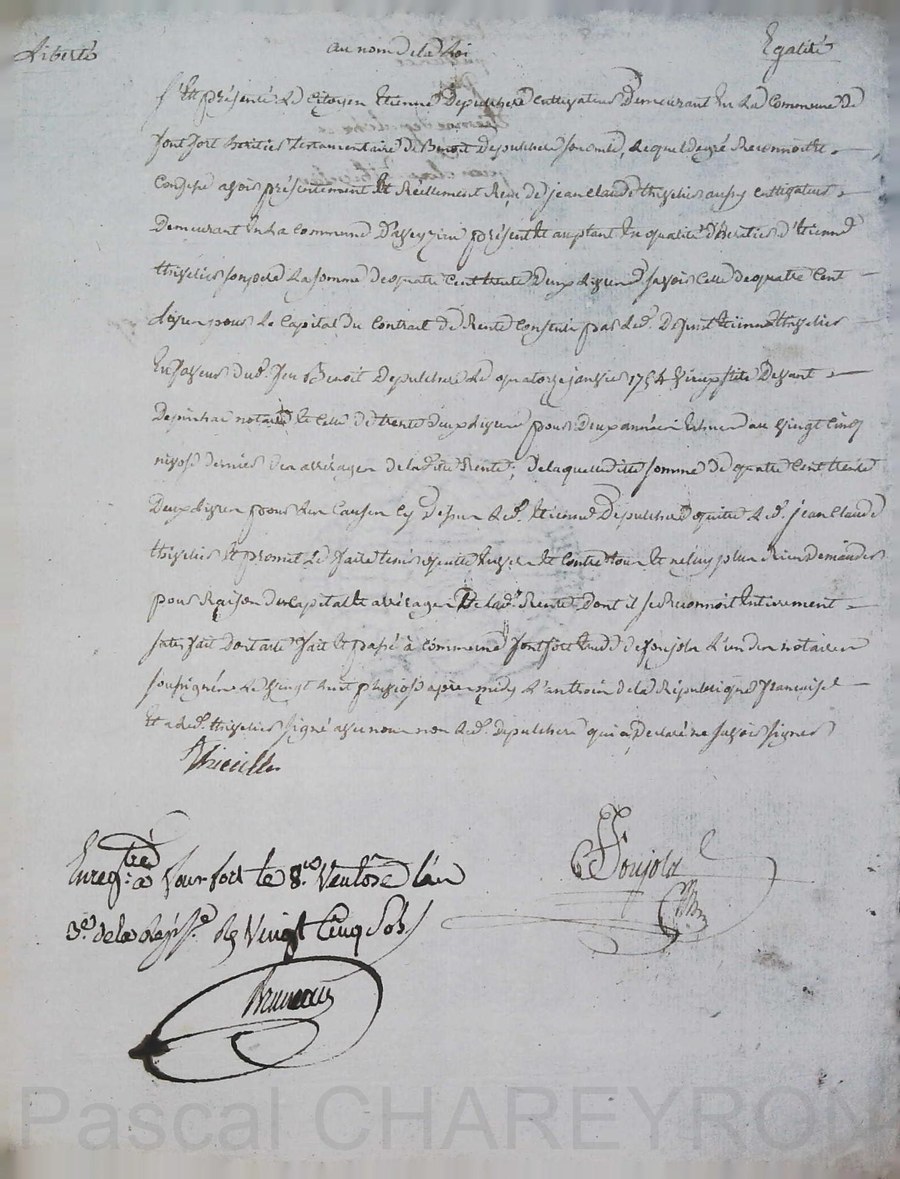 Liberté au nom de la Loi Egalité
S'est présenté Le Citoyen Etienne Depulchere Cultivateur Demeurant En La Commune De
fontfort heritier testamentaire de Benoit Depulchere son oncle, Lequel de gré Reconnoit &
Confesse avoir présentement Et Réellement Reçu de jean Claude aussy Cultivateur
Demeurant En La Commune présent Et acceptant En qualité d'heritier d'Etienne
son pere La somme de quatre Cent trente Deux Livres Savoir Celle de quatre Cent
Livres pour Le Capital Du Contrat De Rente Constitué par led. Defunt Etienne
En faveur dud. feu Benoit Depulchere Le quatorze janvier 1754 Devant
notaire Et Celle de trente deux Livres pour Deux années Echues au Vingt Cinq
nivose dernier des arrérages de lad. Rente; de laquelle ditte somme de quatre Cent trente
Deux Livres pour Les Causes Cy dessus Led. Etienne Depulchere quitte Led. jean Claude
Et promet Le faire tenir quitte Envers Et Contre tous Et ne luy plus Rien Demander
pour Raison des Capital Et arrérages De lad. Rente Dont il se Reconnoit Entierement
satisfait Dont acte fait Et passé à Commune fontfort Etude de Ponjols L'un des notaires
soussignés Le Vingt huit pluviose après midy L'an trois de la République francaise
Et a led. signé avec nous non Led. Depulchere qui a Declaré ne savoir signer
Ponjols
Enreg.tré à Fontfort le 8.e Ventôse l'an
3.e de la Rép. Vingt Cinq Sols
Pascal CHAREYRON